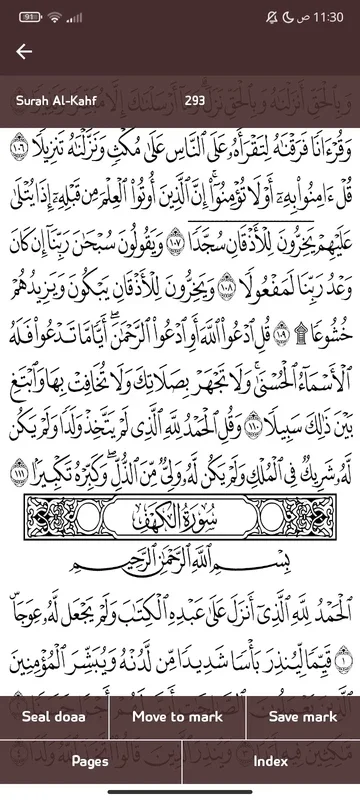 91 11:30 ص
Surah Al-Kahf 293
وَبِٱلْحَقِّ أَنزَلْنَٰهُ وَبِٱلْحَقِّ نَزَلَ وَمَآ أَرْسَلْنَٰكَ إِلَّا مُبَشِّرًا وَنَذِيرًا ١٠٥
وَقُرْءَانًا فَرَقْنَٰهُ لِتَقْرَأَهُۥ عَلَى ٱلنَّاسِ عَلَىٰ مُكْثٍ وَنَزَّلْنَٰهُ تَنزِيلًا ١٠٦
قُلْ ءَامِنُوا۟ بِهِۦٓ أَوْ لَا تُؤْمِنُوٓا۟ ۚ إِنَّ ٱلَّذِينَ أُوتُوا۟ ٱلْعِلْمَ مِن قَبْلِهِۦٓ إِذَا يُتْلَىٰ
عَلَيْهِمْ يَخِرُّونَ لِلْأَذْقَانِ سُجَّدًا ١٠٧ وَيَقُولُونَ سُبْحَٰنَ رَبِّنَآ إِن كَانَ
وَعْدُ رَبِّنَا لَمَفْعُولًا ١٠٨ وَيَخِرُّونَ لِلْأَذْقَانِ يَبْكُونَ وَيَزِيدُهُمْ
خُشُوعًا ۩ ١٠٩ قُلِ ٱدْعُوا۟ ٱللَّهَ أَوِ ٱدْعُوا۟ ٱلرَّحْمَٰنَ ۖ أَيًّا مَّا تَدْعُوا۟ فَلَهُ
ٱلْأَسْمَآءُ ٱلْحُسْنَىٰ ۚ وَلَا تَجْهَرْ بِصَلَاتِكَ وَلَا تُخَافِتْ بِهَا وَٱبْتَغِ
بَيْنَ ذَٰلِكَ سَبِيلًا ١١٠ وَقُلِ ٱلْحَمْدُ لِلَّهِ ٱلَّذِى لَمْ يَتَّخِذْ وَلَدًا وَلَمْ يَكُن
لَّهُۥ شَرِيكٌ فِى ٱلْمُلْكِ وَلَمْ يَكُن لَّهُۥ وَلِىٌّ مِّنَ ٱلذُّلِّ ۖ وَكَبِّرْهُ تَكْبِيرًۢا ١١١
سُورَةُ الكَهْفِ
بِسْمِ ٱللَّهِ ٱلرَّحْمَٰنِ ٱلرَّحِيمِ
ٱلْحَمْدُ لِلَّهِ ٱلَّذِىٓ أَنزَلَ عَلَىٰ عَبْدِهِ ٱلْكِتَٰبَ وَلَمْ يَجْعَل لَّهُۥ عِوَجَاۜ
١ قَيِّمًا لِّيُنذِرَ بَأْسًا شَدِيدًا مِّن لَّدُنْهُ وَيُبَشِّرَ ٱلْمُؤْمِنِينَ
Seal doaa Move to mark Save mark
Pages Index